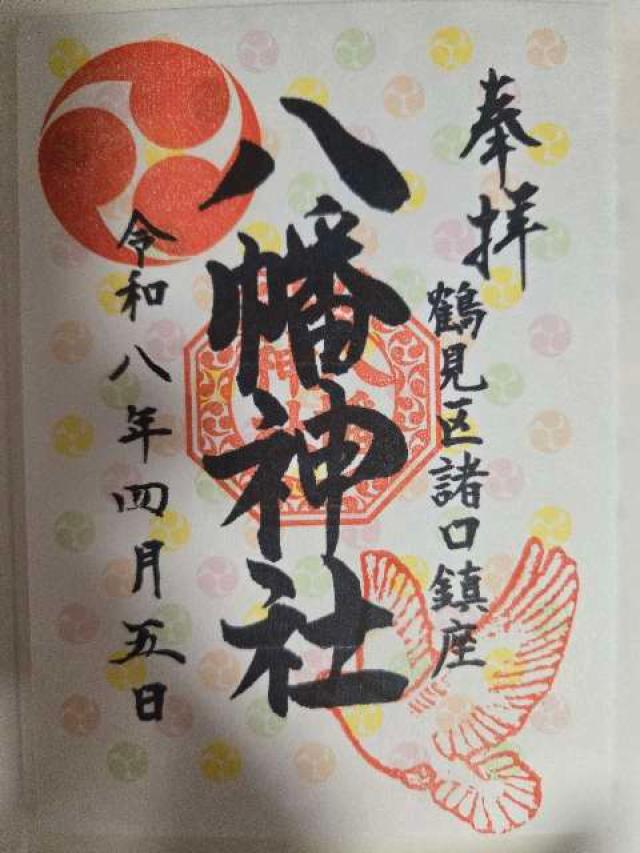 奉拝
鶴見区諸口鎮座
八幡神社
令和八年四月五日